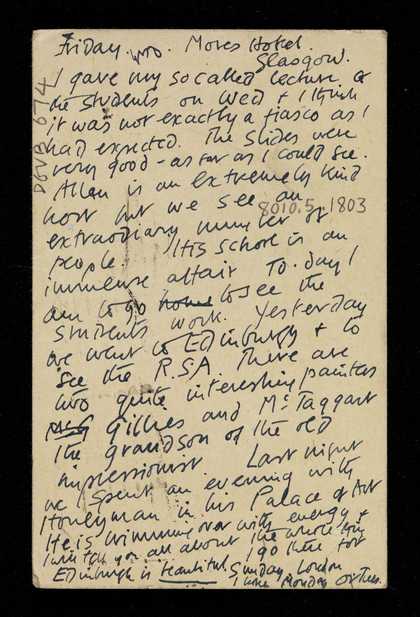 Friday. Mores Hotel.
Glasgow.
I gave my so called lecture to
the students on Wed & I think
it was not exactly a fiasco as I
had expected. The slides were
very good - as far as I could see.
Allan is an extremely kind
host but we see an
extraordiary number of
people. His school is an
immense affair To.day I
am to go home to see the
students work. Yesterday
we went to Edinburgh & to
see the R.S.A. There are
two quite interesting painters
Gillies and McTaggart
the grandson of the old
impressionist. Last night
we spent an evening with
Honeyman in his Palace of Art
He is brimming over with energy &
I will tell you all about the whole
I go there for
Edinburgh is beautiful Sunday, London
Monday or Tues.
DEVB 674
8010.5.1803